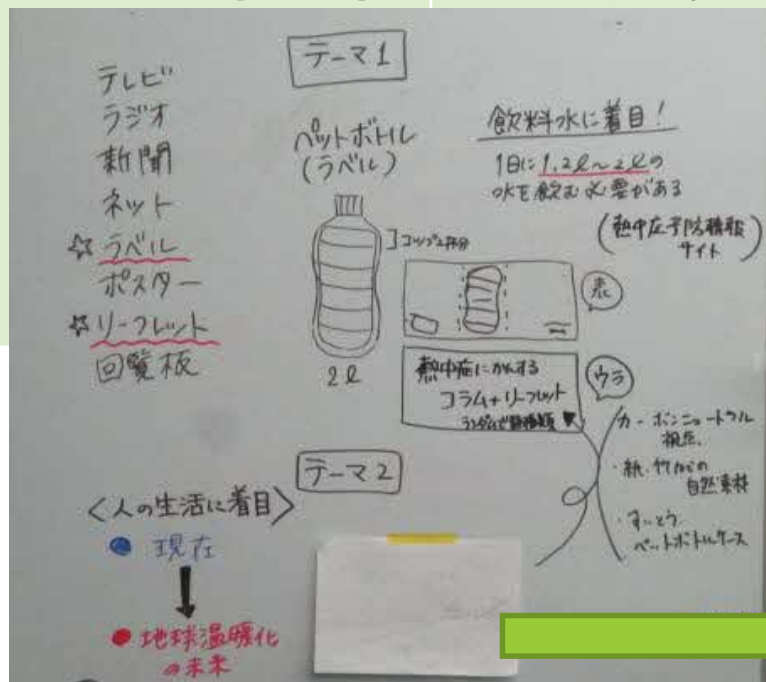 テレビ
ラジオ
新聞
ネット
☆ラベル
ポスター
☆リーフレット
回覧板
テーマ1
ペットボトル
(ラベル)
]コップ2杯分
2ℓ
飲料水に着目!
1日に1.2ℓ~2ℓの
水を飲む必要がある
(熱中症予防情報
サイト)
表
熱中症にかんする
コラム+リーフレット
ウラ
カーボンニュートラル
視点
・紙、竹などの
自然素材
・すいとう
ペットボトルケース
テーマ2
<人の生活に着目>
●現在
↓
●地球温暖化
の未来